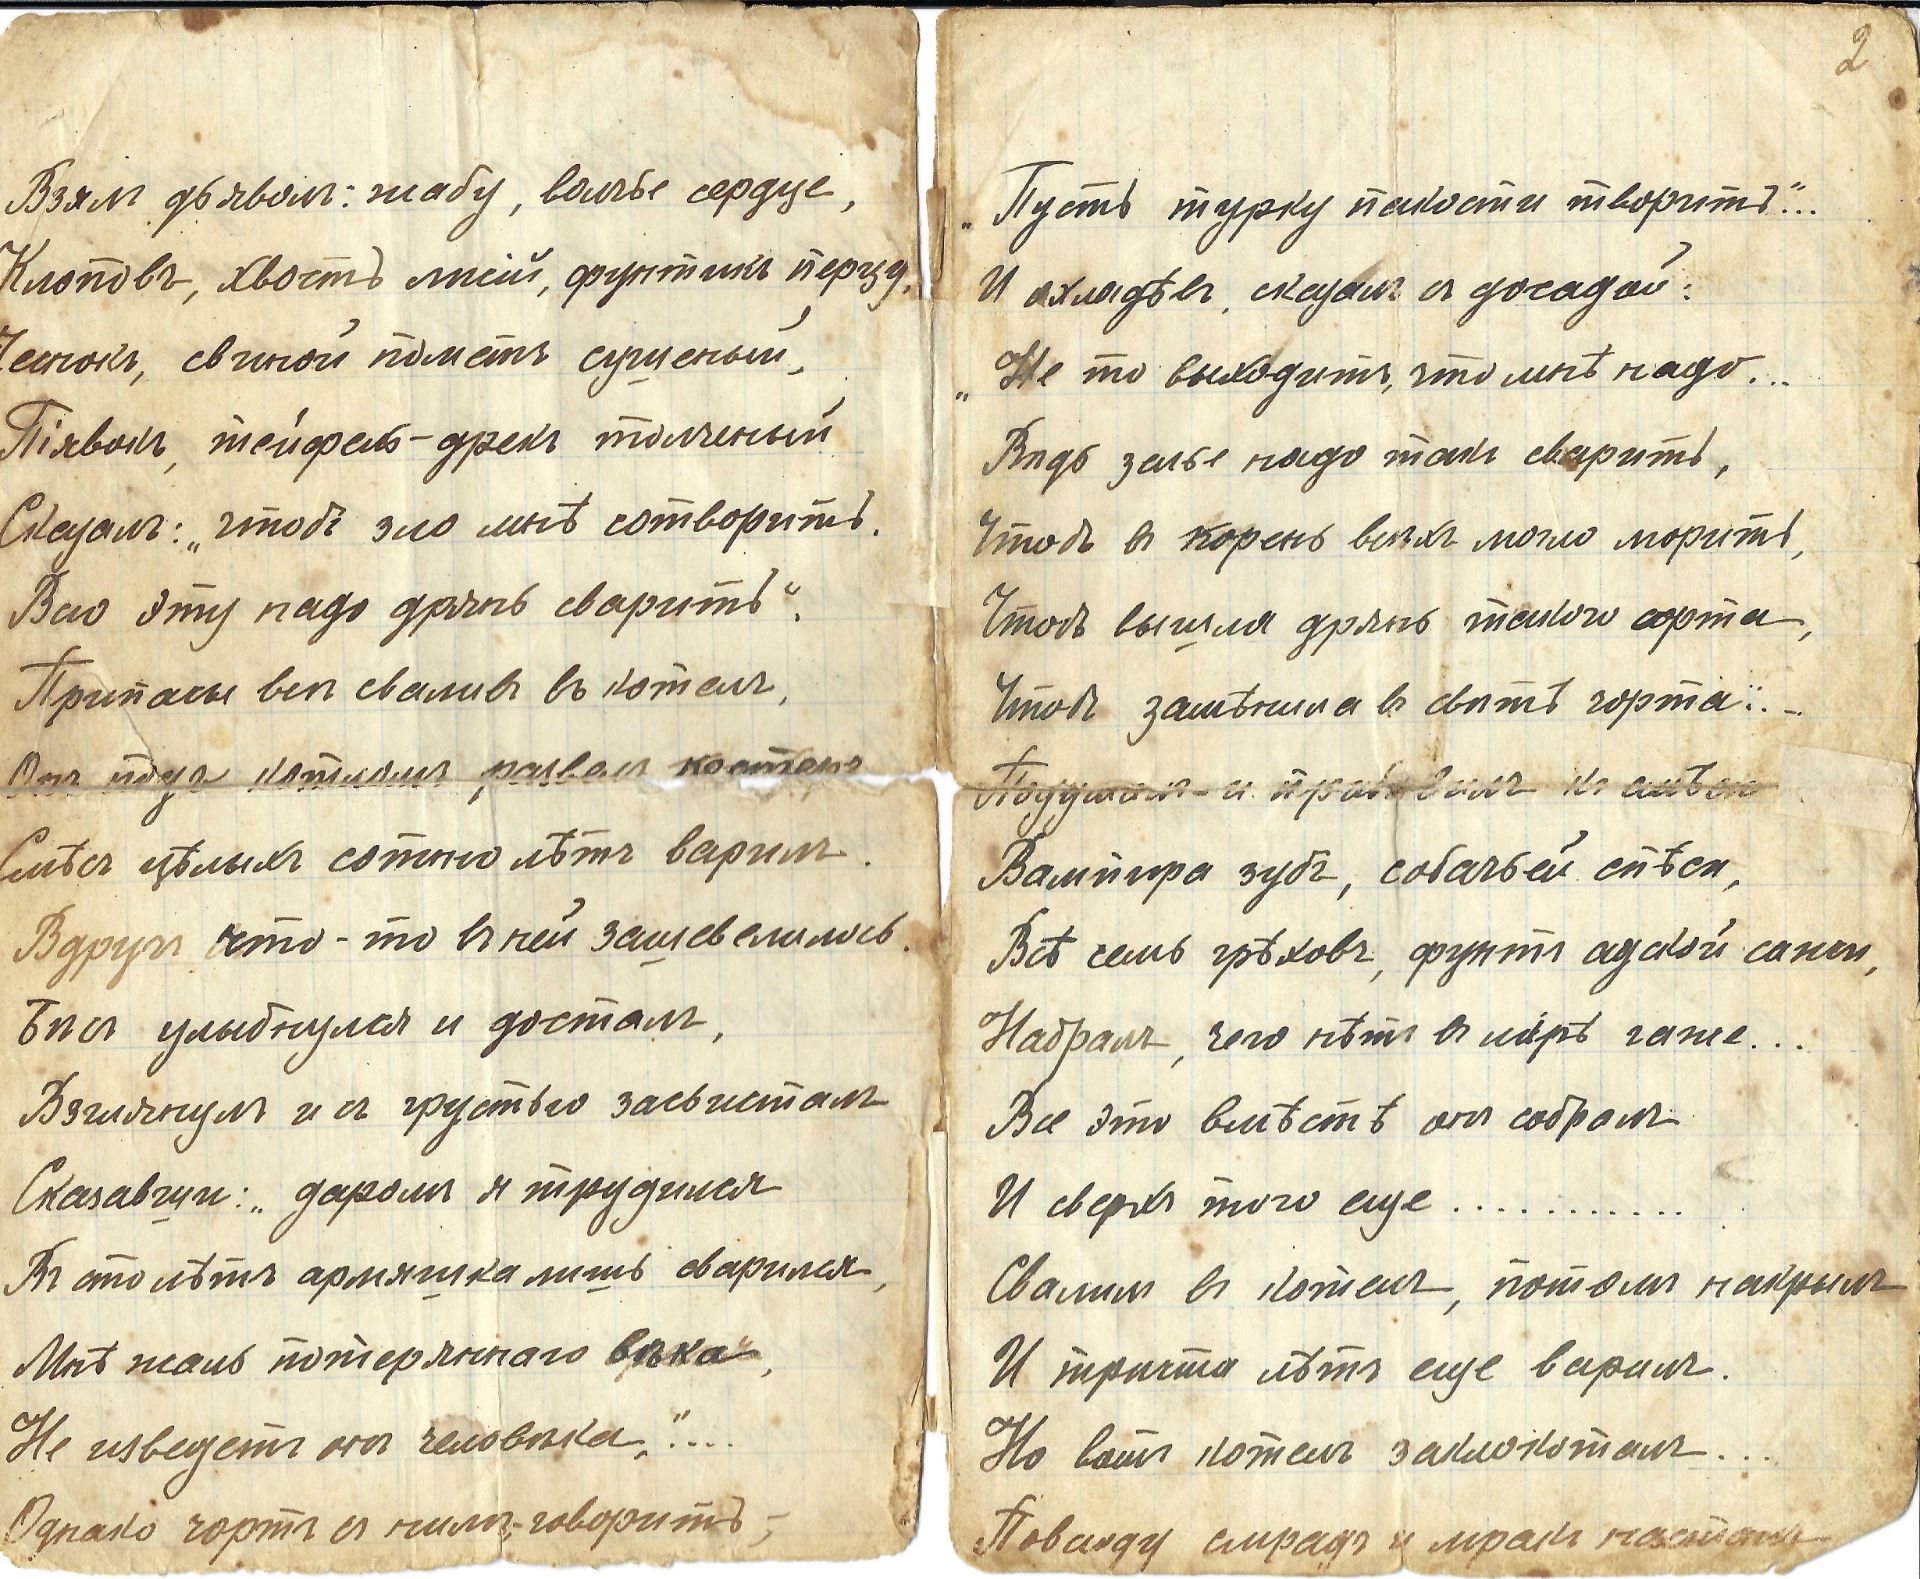 Взялъ дьяволъ: жабу, волчье сердце,
Клоповъ, хвостъ лисій, фунтикъ перцу,
Чеснокъ, свиной пометъ сушеный,
Піявокъ, тейфель-дрекъ толченый
Сказалъ: „чтобъ зло мнѣ сотворить.
Всю эту надо дрянь сварить“.
Припасы всѣ сваливъ въ котелъ,
Онъ подъ котломъ развелъ костеръ
Смѣсь цѣлыхъ сотню лѣтъ варилъ.
Вдругъ что-то въ ней зашевелилось.
Бѣсъ улыбнулся и досталъ,
Взглянулъ и съ грустью засвисталъ
Сказавши: „даромъ я трудился
Въ сто лѣтъ армяшка лишь сварился,
Мнѣ жаль потеряннаго вѣка“,
Не изведетъ онъ человѣка,“....
Однако чортъ съ нимъ,-говоритъ,-
2
„Пусть турку пакости творитъ“...
И охладѣвъ, сказалъ съ досадой:
„Не то выходитъ, что мнѣ надо...
Вѣдь зелье надо такъ сварить,
Чтобъ въ корень всѣхъ могло морить,
Чтобъ вышла дрянь такого сорта,
Чтобъ замѣнила въ свѣтѣ чорта“...
Подумалъ и прибавилъ къ смѣси
Вампира зубъ, собачьей спѣси,
Всѣ семь грѣховъ, фунтъ адской сажи,
Набралъ, чего нѣтъ въ мірѣ гаже...
Все это вмѣстѣ онъ собралъ
И сверхъ того еще ............
Свалилъ въ котелъ, потомъ накрылъ
И триста лѣтъ еще варилъ.
Но вотъ котелъ заклокоталъ....
Повсюду смрадъ и мракъ насталъ